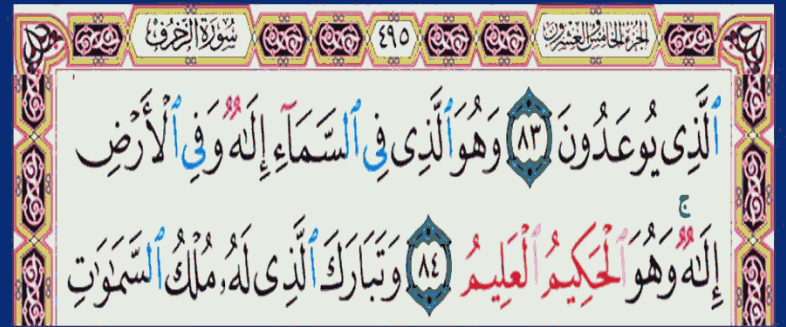 سُورَةُ الزُّخْرُف ٤٩٥ الجُزْءُ الخَامِسُ وَالعِشْرُونَ
ٱلَّذِى يُوعَدُونَ ٨٣ وَهُوَ ٱلَّذِى فِى ٱلسَّمَآءِ إِلَٰهٌ وَفِى ٱلْأَرْضِ
إِلَٰهٌ ۚ وَهُوَ ٱلْحَكِيمُ ٱلْعَلِيمُ ٨٤ وَتَبَارَكَ ٱلَّذِى لَهُۥ مُلْكُ ٱلسَّمَٰوَٰتِ